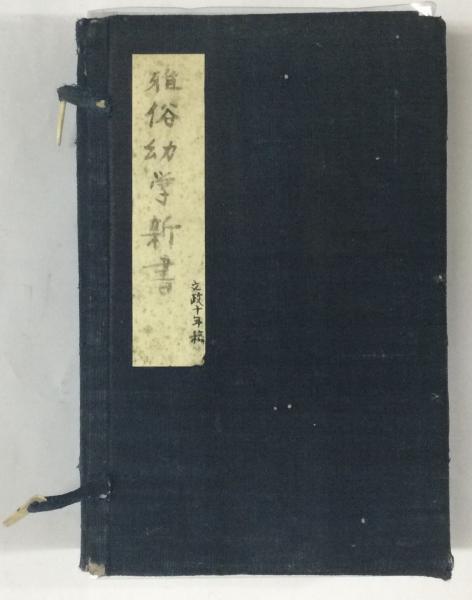 雅俗幼学新書
文政十年稿